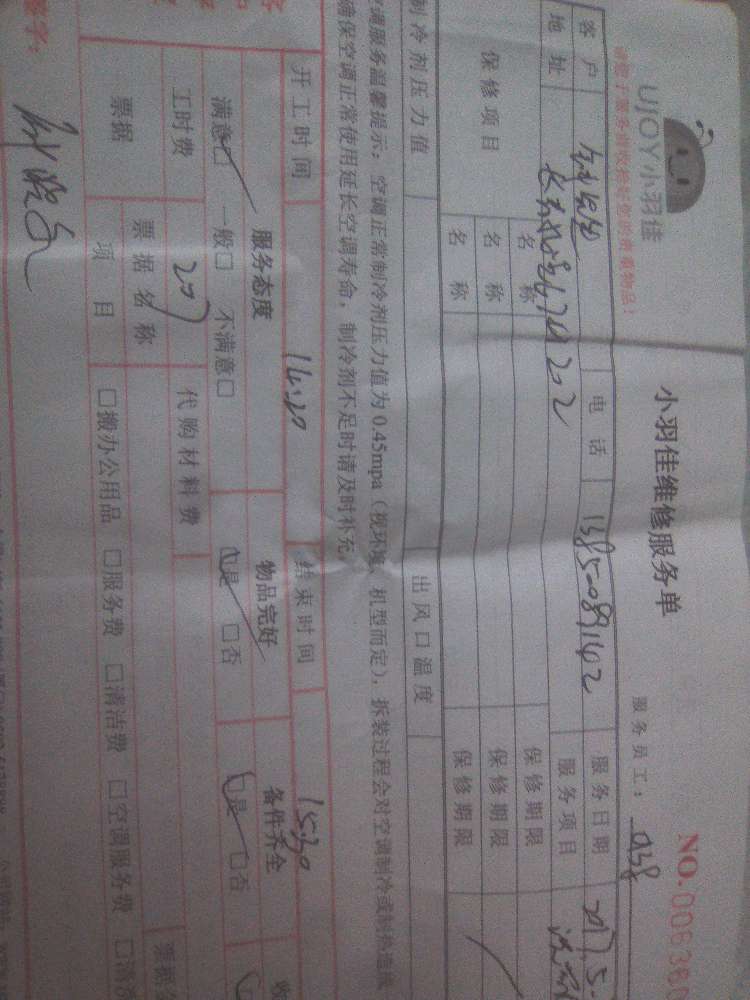 UJOY小羽佳
小羽佳维修服务单
NO.006360
服务员工：038
客户
电话 13850891142
服务日期 2017.5.
地址
202
服务项目
保修项目
名称
保修期限
名称
保修期限
名称
保修期限
制冷剂压力值
出风口温度
空调服务温馨提示：空调正常制冷剂压力值为0.45mpa（视环境、机型而定），拆装过程会对空调制冷或制热造成
确保空调正常使用延长空调寿命，制冷剂不足时请及时补充
开工时间 14:30
结束时间 15:30
服务态度
物品完好
备件齐全
满意□ 一般□ 不满意□
□是 □否
□是 □否
工时费 207
代购材料费
票据
票据名称
项目
□搬办公用品 □服务费 □清洁费 □空调服务费
签字：